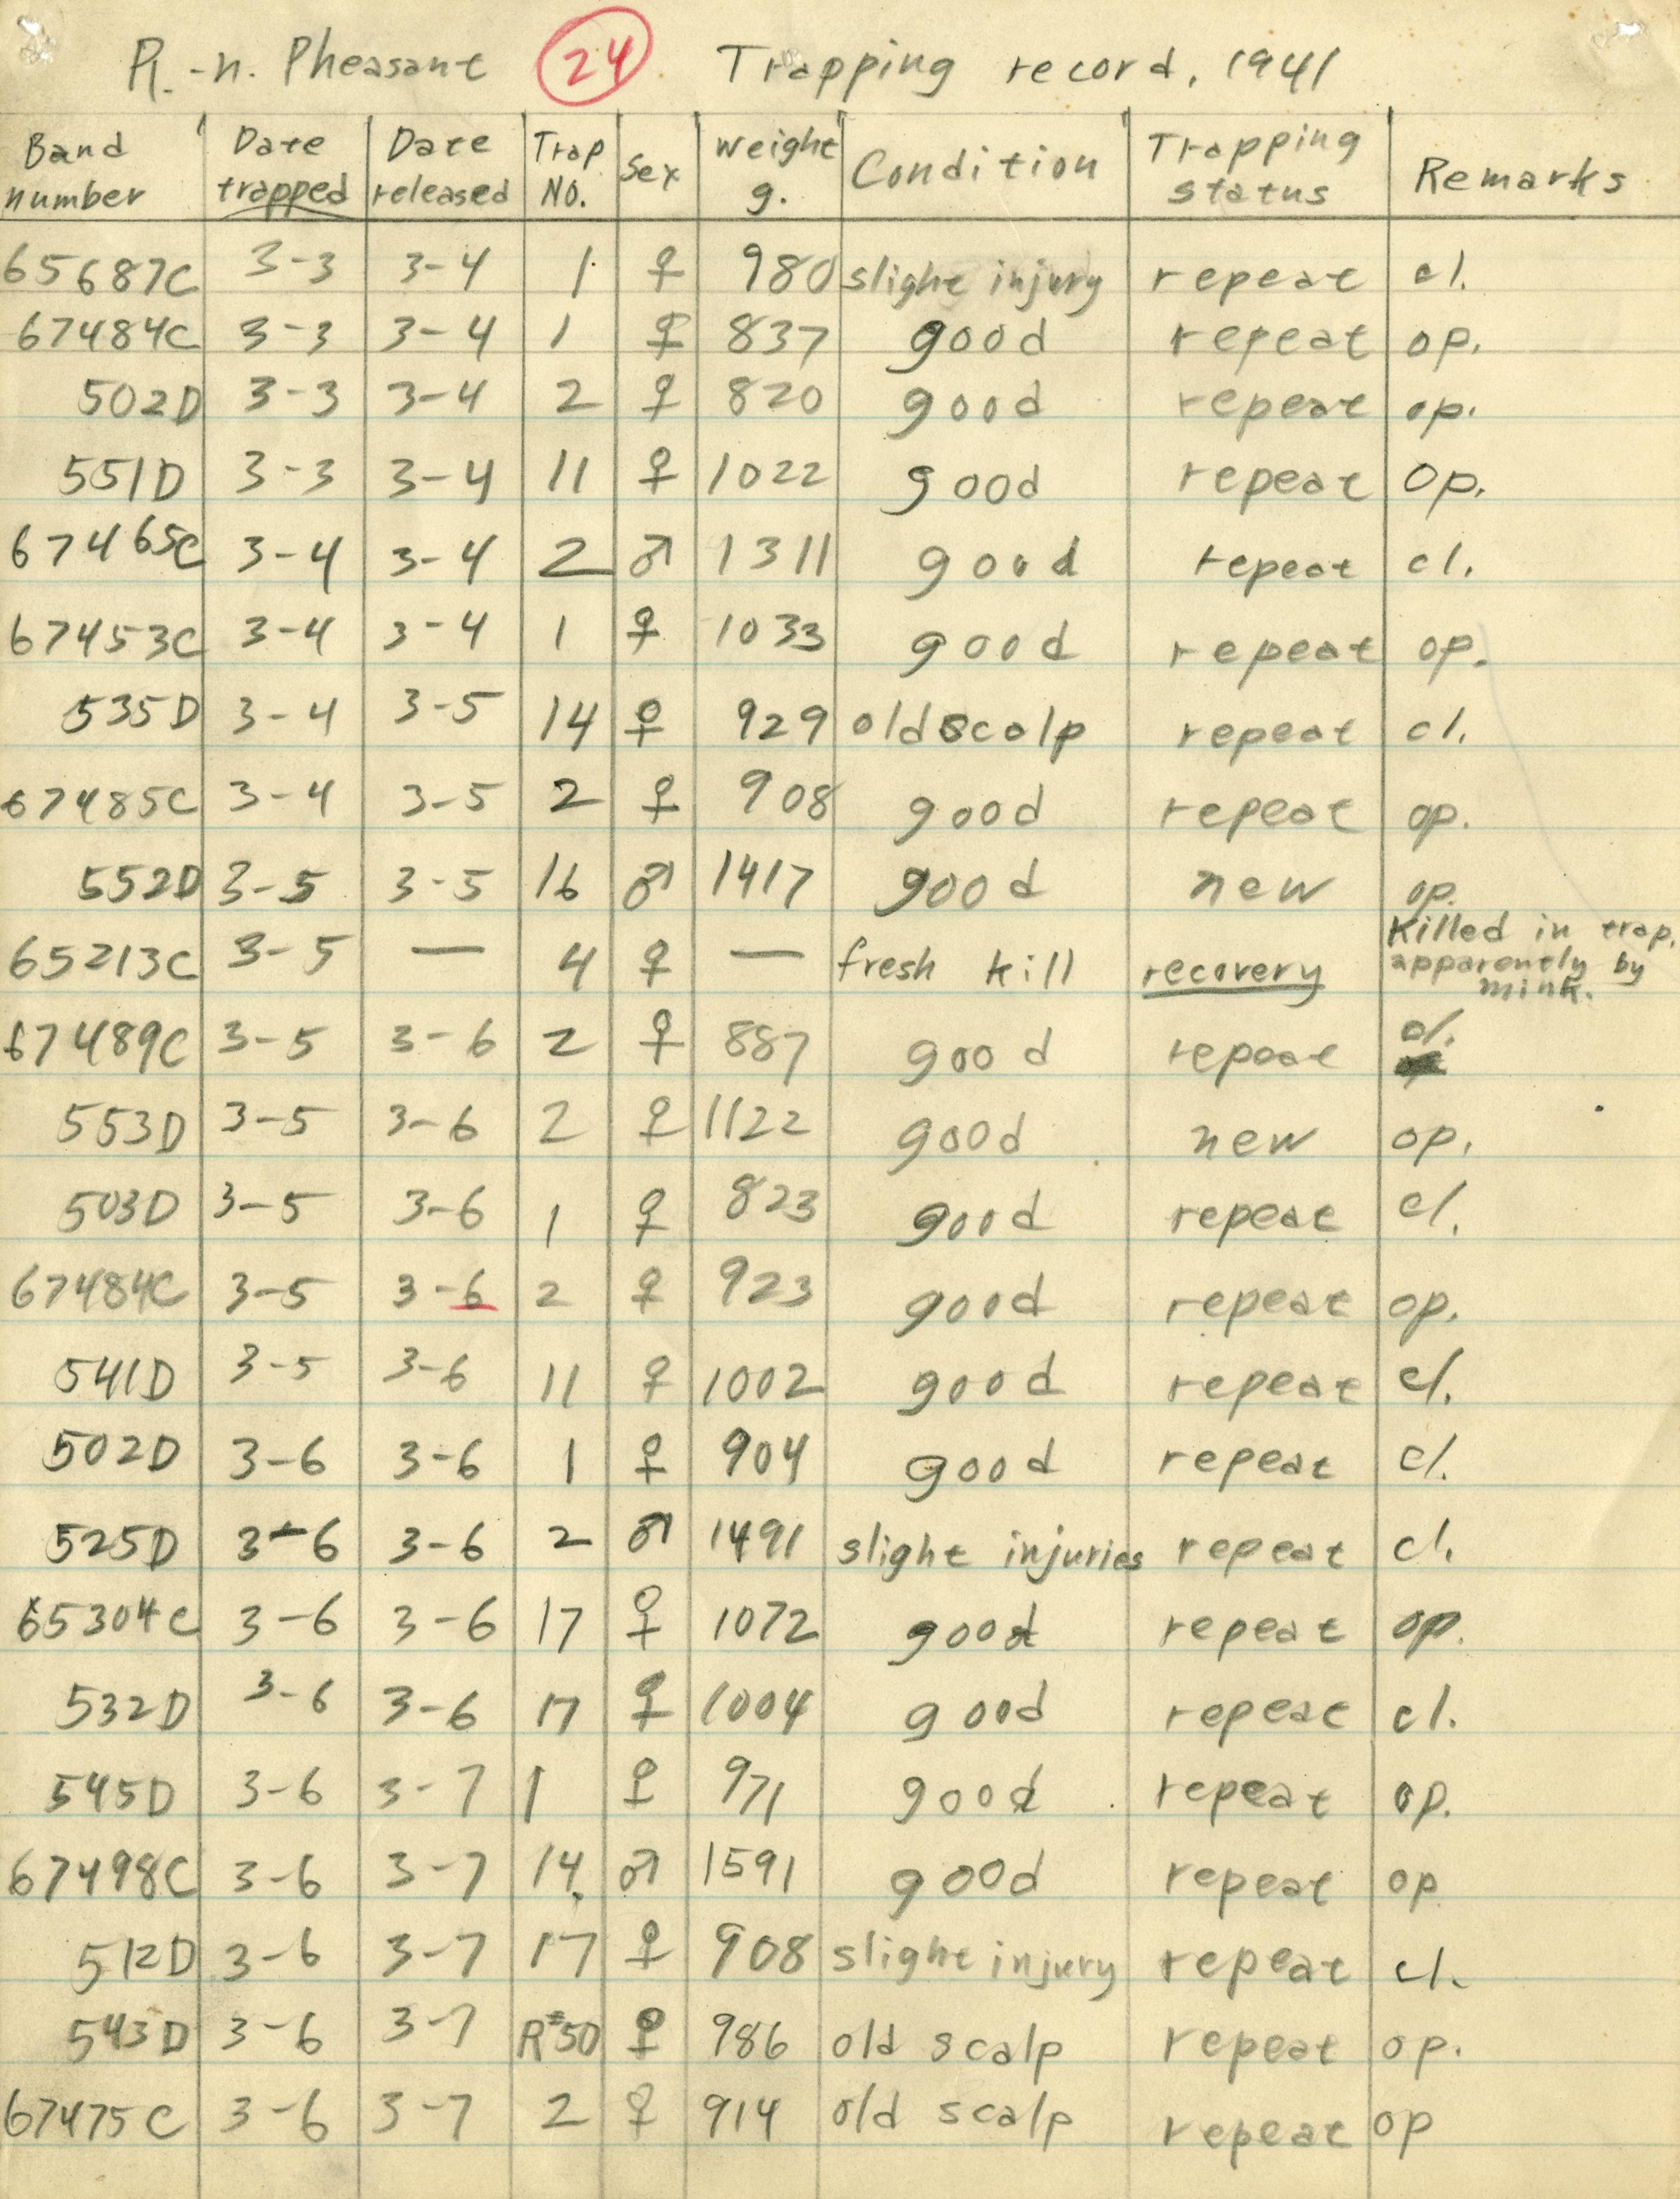 R.-n. Pheasant 24 Trapping record, 1941
Band number Date trapped Date released Trap No. Sex Weight g. Condition Trapping status Remarks
65687C 3-3 3-4 1 ♀ 980 slight injury repeat cl.
67484C 3-3 3-4 1 ♀ 837 good repeat op.
502D 3-3 3-4 2 ♀ 820 good repeat op.
551D 3-3 3-4 11 ♀ 1022 good repeat op.
67465C 3-4 3-4 2 ♂ 1311 good repeat cl.
67453C 3-4 3-4 1 ♀ 1033 good repeat op.
535D 3-4 3-5 14 ♀ 929 old scalp repeat cl.
67485C 3-4 3-5 2 ♀ 908 good repeat op.
552D 3-5 3-5 16 ♂ 1417 good new op.
65213C 3-5 — 4 ♀ — fresh kill recovery Killed in trap, apparently by mink.
67489C 3-5 3-6 2 ♀ 887 good repeat cl.
553D 3-5 3-6 2 ♀ 1122 good new op.
503D 3-5 3-6 1 ♀ 823 good repeat cl.
67484C 3-5 3-6 2 ♀ 923 good repeat op.
541D 3-5 3-6 11 ♀ 1002 good repeat cl.
502D 3-6 3-6 1 ♀ 904 good repeat cl.
525D 3-6 3-6 2 ♂ 1491 slight injuries repeat cl.
65304C 3-6 3-6 17 ♀ 1072 good repeat op.
532D 3-6 3-6 17 ♀ 1004 good repeat cl.
545D 3-6 3-7 1 ♀ 971 good repeat op.
67498C 3-6 3-7 14 ♂ 1591 good repeat op
512D 3-6 3-7 17 ♀ 908 slight injury repeat cl.
543D 3-6 3-7 R#50 ♀ 986 old scalp repeat op.
67475C 3-6 3-7 2 ♀ 914 old scalp repeat op